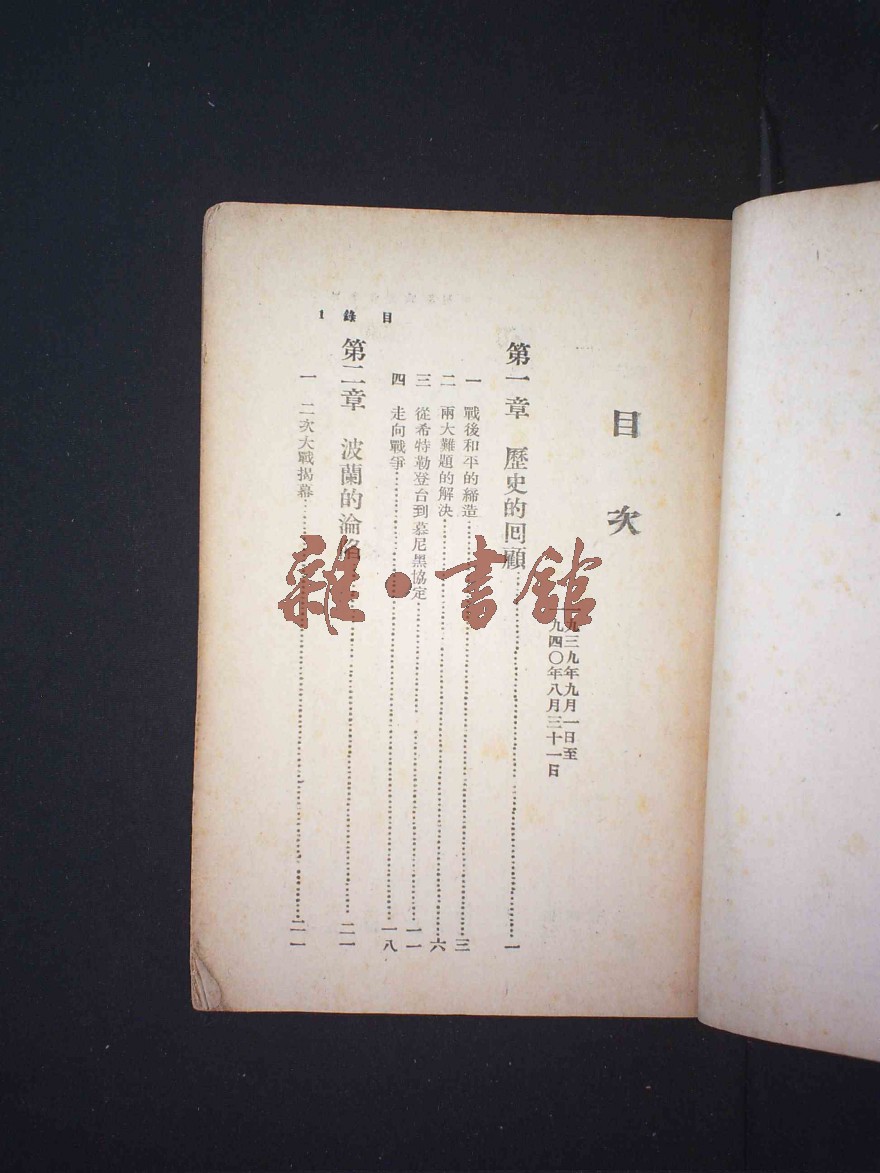 目次
一九三九年九月一日至
一九四〇年八月三十一日
第一章 歷史的囘顧……一
一 戰後和平的締造……三
二 兩大難題的解決……六
三 從希特勒登台到慕尼黑協定……一一
四 走向戰爭……一八
第二章 波蘭的淪陷……二一
一 二次大戰揭幕……二一
目錄 1
雜·書館